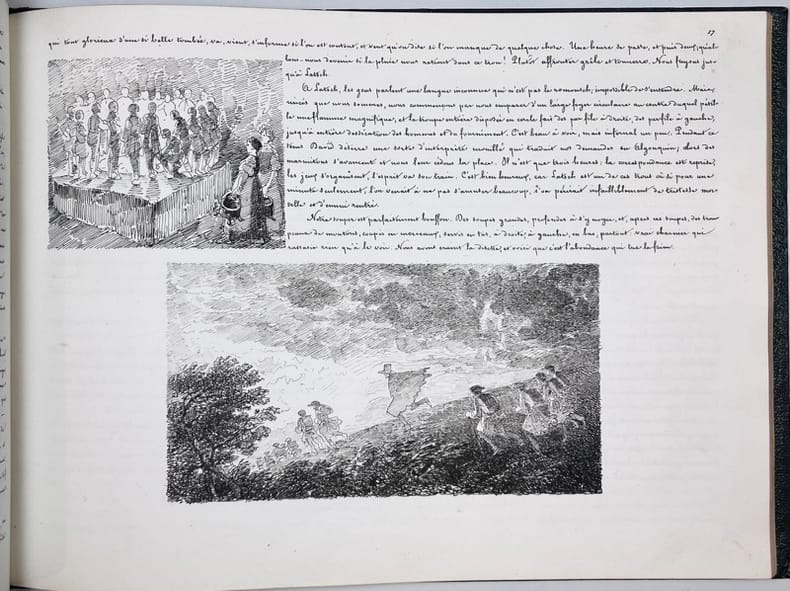 17
qui tout glorieux d'une si belle tombée, va, vient, s'informe si l'on est content, et veut qu'on dise si l'on manque de quelque chose. Une heure de passe, et puis deux, qu'al-
lons-nous devenir si la pluie nous retient dans ce trou! Plutôt affronter grêle et tonnerre. Nous fuyons jus-
qu'à Latsch.
A Latsch, les gens parlent une langue inconnue qui n'est pas le romonsch, impossible de s'entendre. Mais,
rincés que nous sommes, nous commençons par nous emparer d'un large foyer circulaire au centre duquel pétil-
le une flamme magnifique, et la troupe entière disposée en cercle fait des par file à droite, des par file à gauche,
jusqu'à entière dessication des hommes et du fourniment. C'est beau à voir, mais infernal un peu. Pendant ce
tems David déterre une sorte d'interprète mouillé qui traduit nos demandes en Algonquin; alors des
marmitons s'avancent et nous leur cédons la place. Il n'est que trois heures; la correspondance est reprise,
les jeux s'organisent, l'esprit va son train. C'est bien heureux, car Latsch est un de ces trous où si pour une
minute seulement, l'on venait à ne pas s'amuser beaucoup, l'on périrait infailliblement de tristesse mor-
telle et d'ennui rentré.
Notre souper est parfaitement bouffon. Des soupes grandes, profondes à s'y noyer, et, après ces soupes, des
de moutons, coupés en morceaux, servis en tas, à droite, à gauche, en bas, partout, vrai charnier qui
rassasie rien qu'à le voir. Nous avons craint la disette, et voici que c'est l'abondance qui tue la faim.